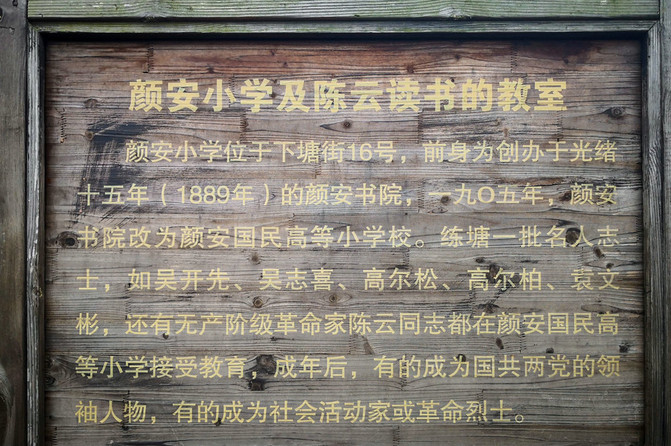 颜安小学及陈云读书的教室
颜安小学位于下塘街16号，前身为创办于光绪
十五年（1889年）的颜安书院，一九O五年，颜安
书院改为颜安国民高等小学校。练塘一批名人志
士，如吴开先、吴志喜、高尔松、高尔柏、袁文
彬，还有无产阶级革命家陈云同志都在颜安国民高
等小学接受教育，成年后，有的成为国共两党的领
袖人物，有的成为社会活动家或革命烈士。